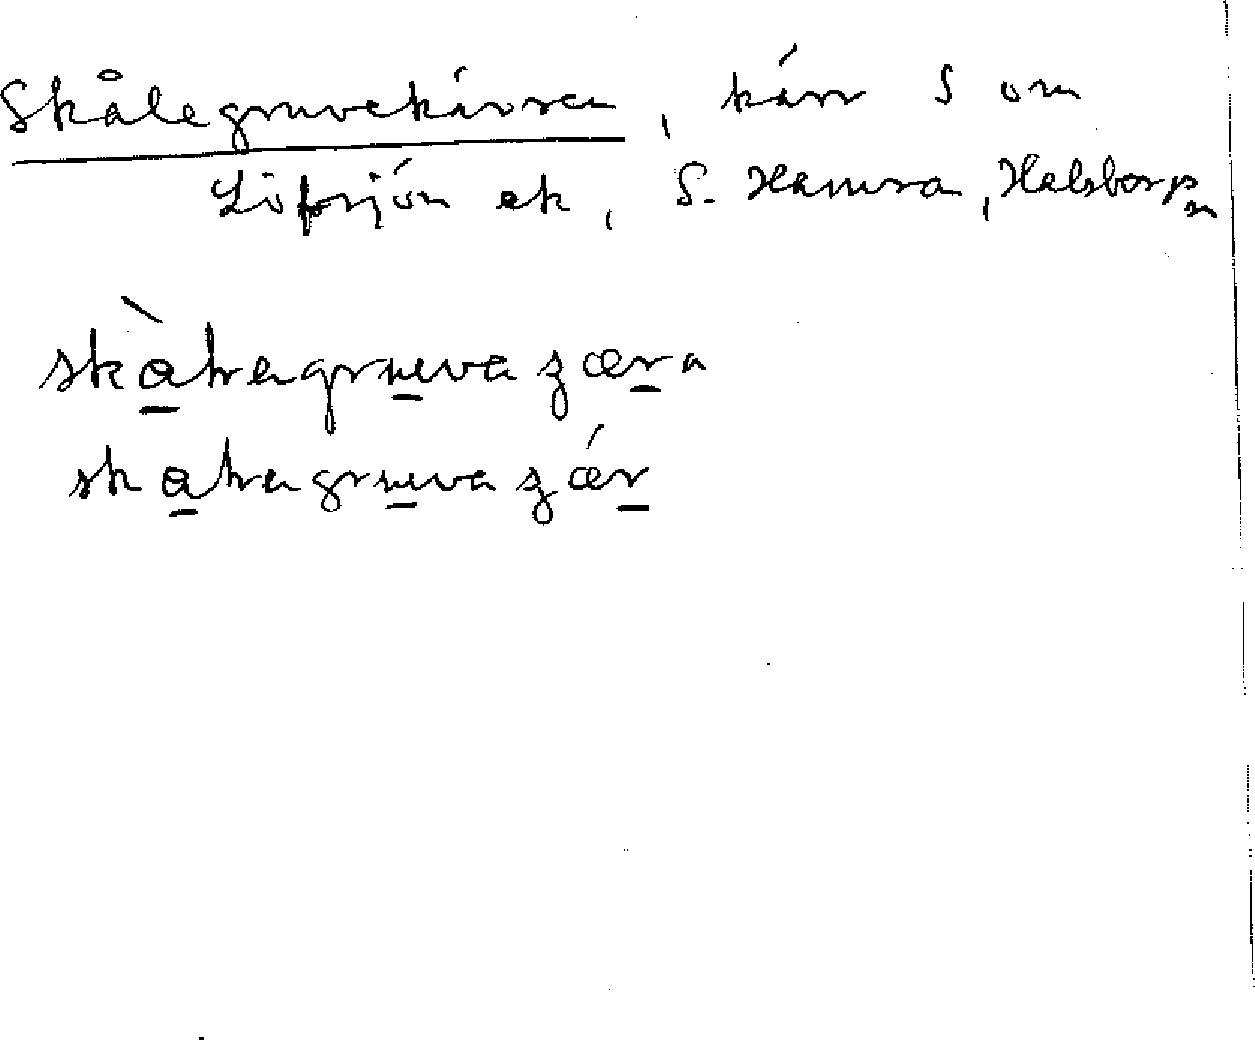 Skålegruvekärren, kärr S om
Löpsjön ek, S. Hamra, Halsbergs
skàtragruevazæra
skatragruevazǽr